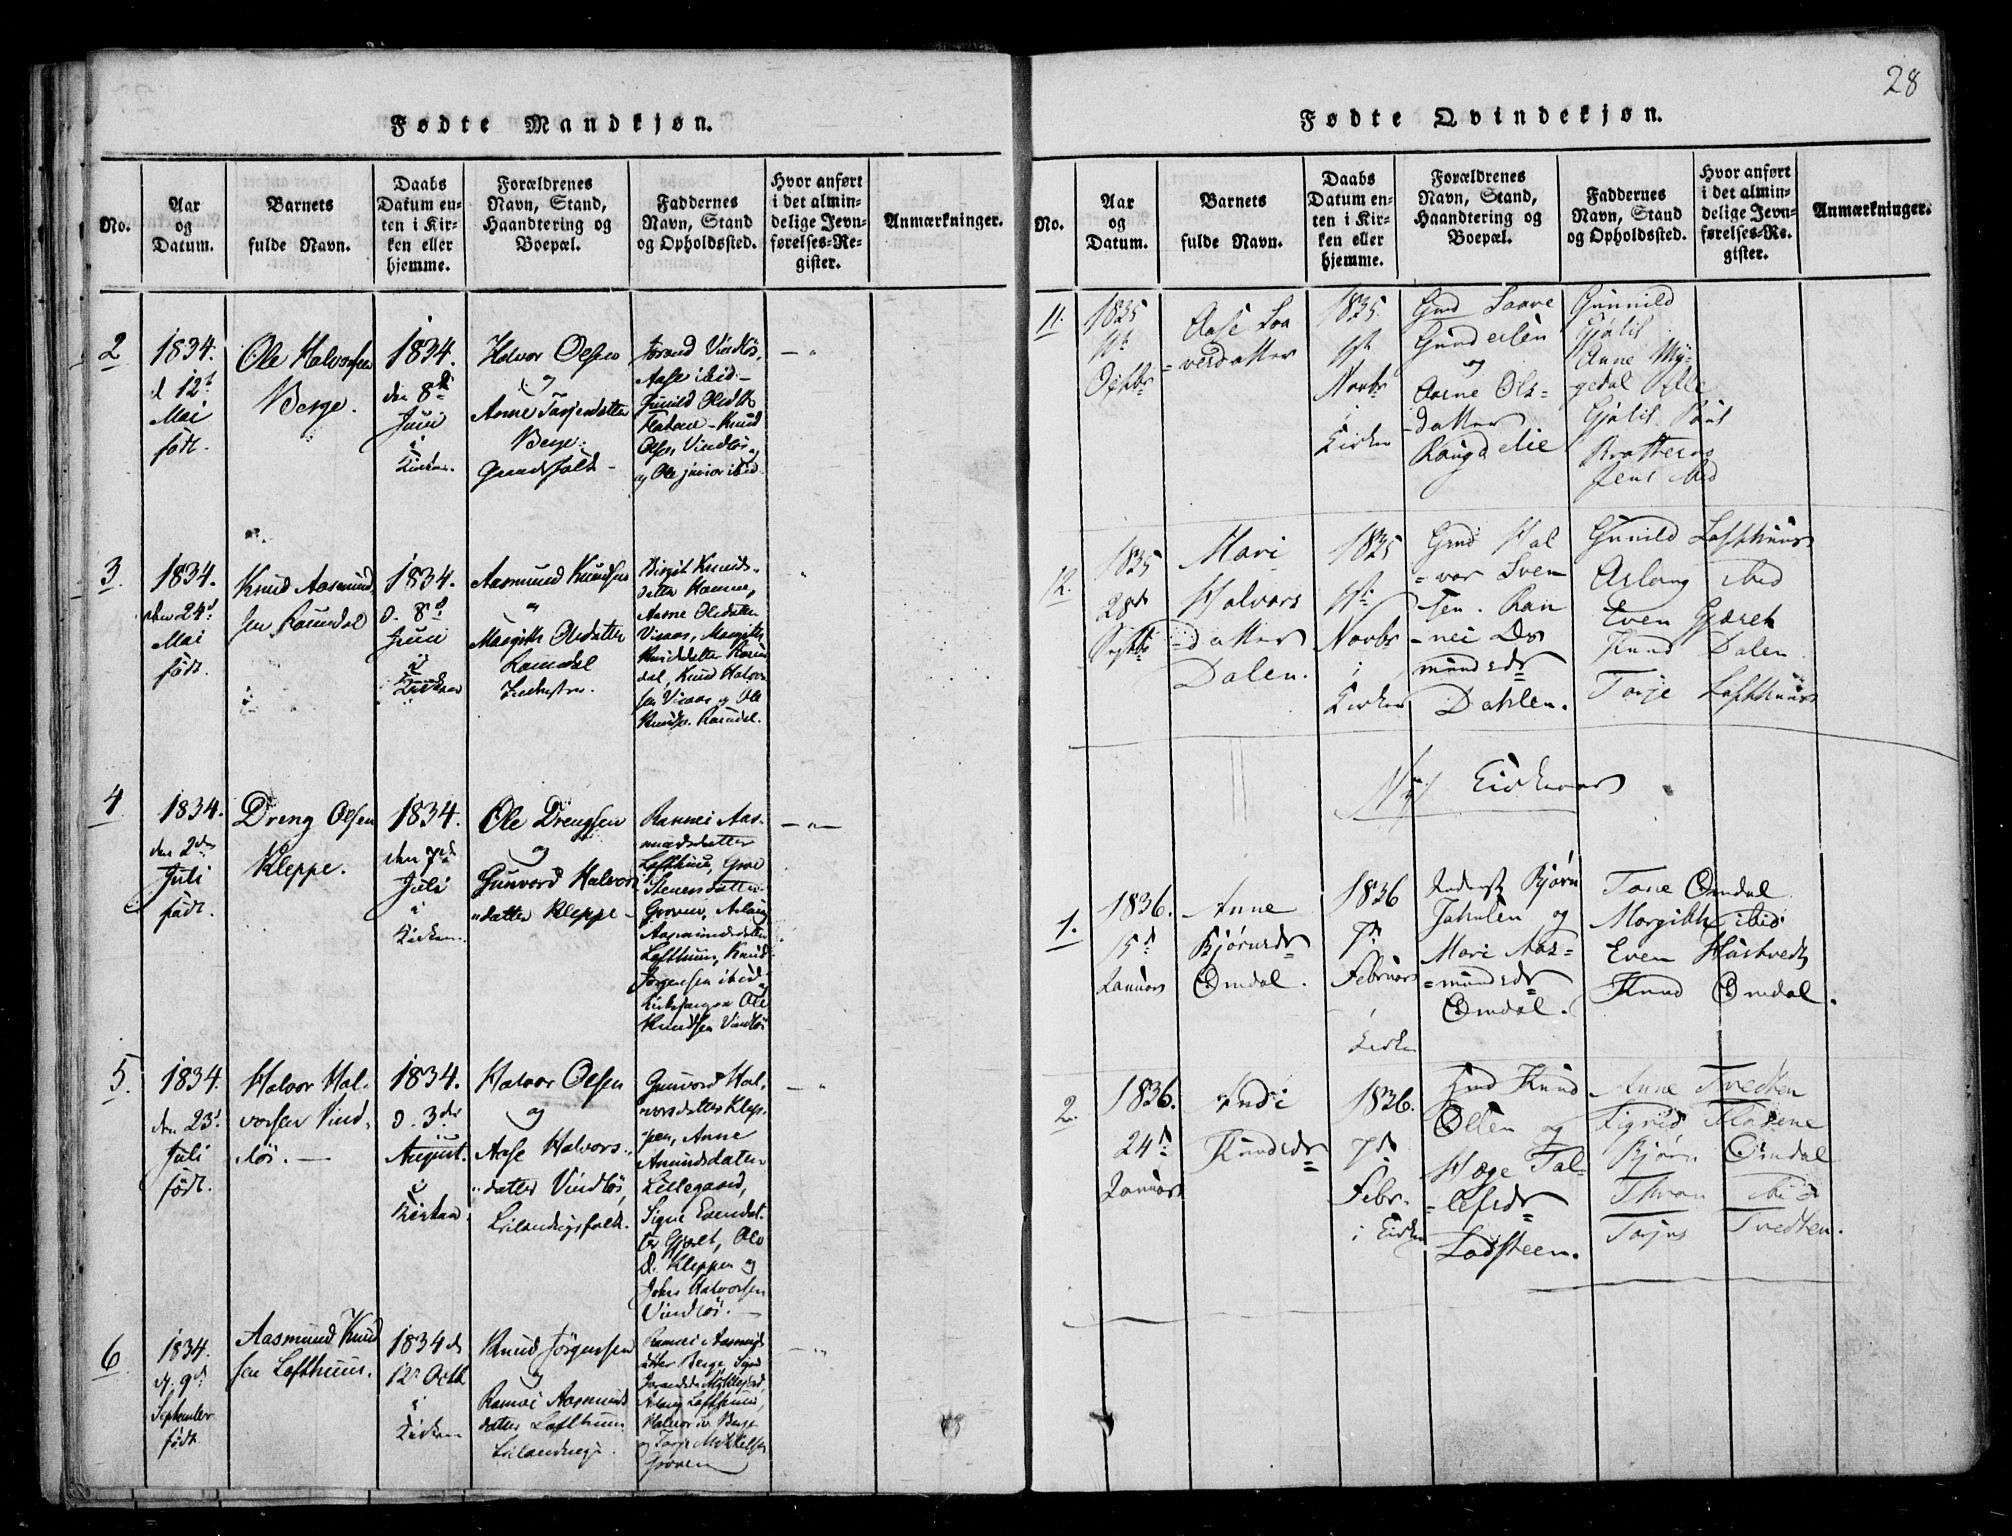 28
Fødte Mandkjøn.
No.
Aar
og
Datum.
Barnets
fulde Navn.
Daabs
Datum en-
ten i Kir-
ken eller
hjemme.
Forældrenes
Navn, Stand,
Haandtering og
Boepæl.
Faddernes
Navn, Stand
og Opholdssted.
Hvor anført
i det almin-
delige Jevn-
førelses-Re-
gister.
Anmærkninger.
2
1834.
d 12t
Mai
født.
Ole Halvorsen
Berge.
1834.
den 8de
Juni
i
Kirken.
Halvor Olsen
og
Anne Tarjeidatter
Berge.
Aase ibid-
Gunild Olsdtr
Knud
Olsen Vindlös
og Ole junior ibid.
3.
1834.
den 24d
Mai
født.
Knud Aasmund
sen Ramdal
1834.
d. 8d
Juni
i
Kirken
Aasmund Knudsen
og
Margith Olsdatter
Ramdal
Birgit Knuds-
datter
Aasne Olsdatter
Visaas, Margith
Knudsdatter Ram
dal, Knud Halvor
sen Visaas og Ole
Knuds. Ramdal.
4
1834.
den 2den
Juli
født.
Dreng Olsen
Kleppe.
1834.
den
Juli
i
Kirken.
Ole Drengsen
og
Gunvord Halvors
datter Kleppe
Rannei Aas-
mundsdatter
Lofthuus, Groe
Steensdatter
Groven, Aslaug
Aasmundsdatter
Lofthuus, Knud
Jørgensen ibid
Kirkesanger Ole
Knudsen Vindlös
5.
1834.
den 23d
Juli
født.
Halvor Hal-
vorsen Vind-
lös.
1834.
d. 3die
August.
i
Kirken
Halvor Olsen
og
Aase Halvors-
datter Vindlös,
Leilændingsfolk.
Gunvord Hal-
vorsdatter Klep-
pen, Anne
Amundsdatter
Lillegaard,
Signe Evensdat-
ter Gjeret, Ole
D. Kleppen og
John Halvorsen
Vindlös.
6
1834.
d. 9d
September
født
Aasmund Knud
sen Lofthuus.
1834 d
12te Octb
i
Kirken
Knud Jørgensen
og
Rannei Aasmunds
datter Lofthuus
Rannei Aasmunds
datter Berge
Aslaug Lofthuus,
Halvor Berge
og Tarje Mikkelsen
Groven
Fødte Qvindekjøn.
No.
Aar
og
Datum.
Barnets
fulde Navn.
Daabs
Datum en-
ten i Kir-
ken eller
hjemme.
Forældrenes
Navn, Stand,
Haandtering og
Boepæl.
Faddernes
Navn, Stand
og Opholdssted.
Hvor anført
i det almin-
delige Jevn-
førelses-Re-
gister.
Anmærkninger.
11.
1835
Octbr
Aase Saa
versdatter
1835.
1st
Novbr
i
Kirken
Gmd Saave
Gundersen
og
Aasne Ols-
datter
Gunnild
Gjølil
Anne My-
gedal Olle
Gjølil
Jens ibid
12.
1835
28de
Septbr
Mari
Halvors
datter
Dalen.
1835
1st
Novbr
i
Kirken
Gmd Hal
vor Sven
sen. Ran
nei Os
mundsdr
Dahlen.
Gunild Lofthuus
Aslaug ibid
Even Gjeret
Knud Dalen
Torje Lofthuus
1.
1836.
15d
Januar
Anne
Bjørnsdr
Omdal.
1836
7d
Februar
i
Kirken
Bjørn
og
Mari Aas-
mundsdr
Omdal.
Tone Omdal
Margith ibid
Even Haatvedt
Knud Omdal.
2.
1836.
24d
Januar
Knudsdr
1836.
7d
Febr.
i Kirken
Gmd Knud
Olsen og
Hæge Tal-
lefsdr
Ladsteen.
Anne Tvedten
Sigrid
Bjørn Omdal
ibid
Torjus Tvedten.